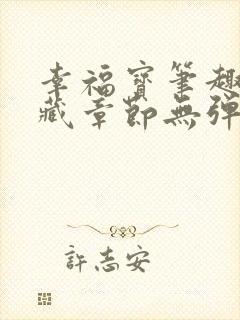 幸福寶筆趣
藏章節無彈
許志安